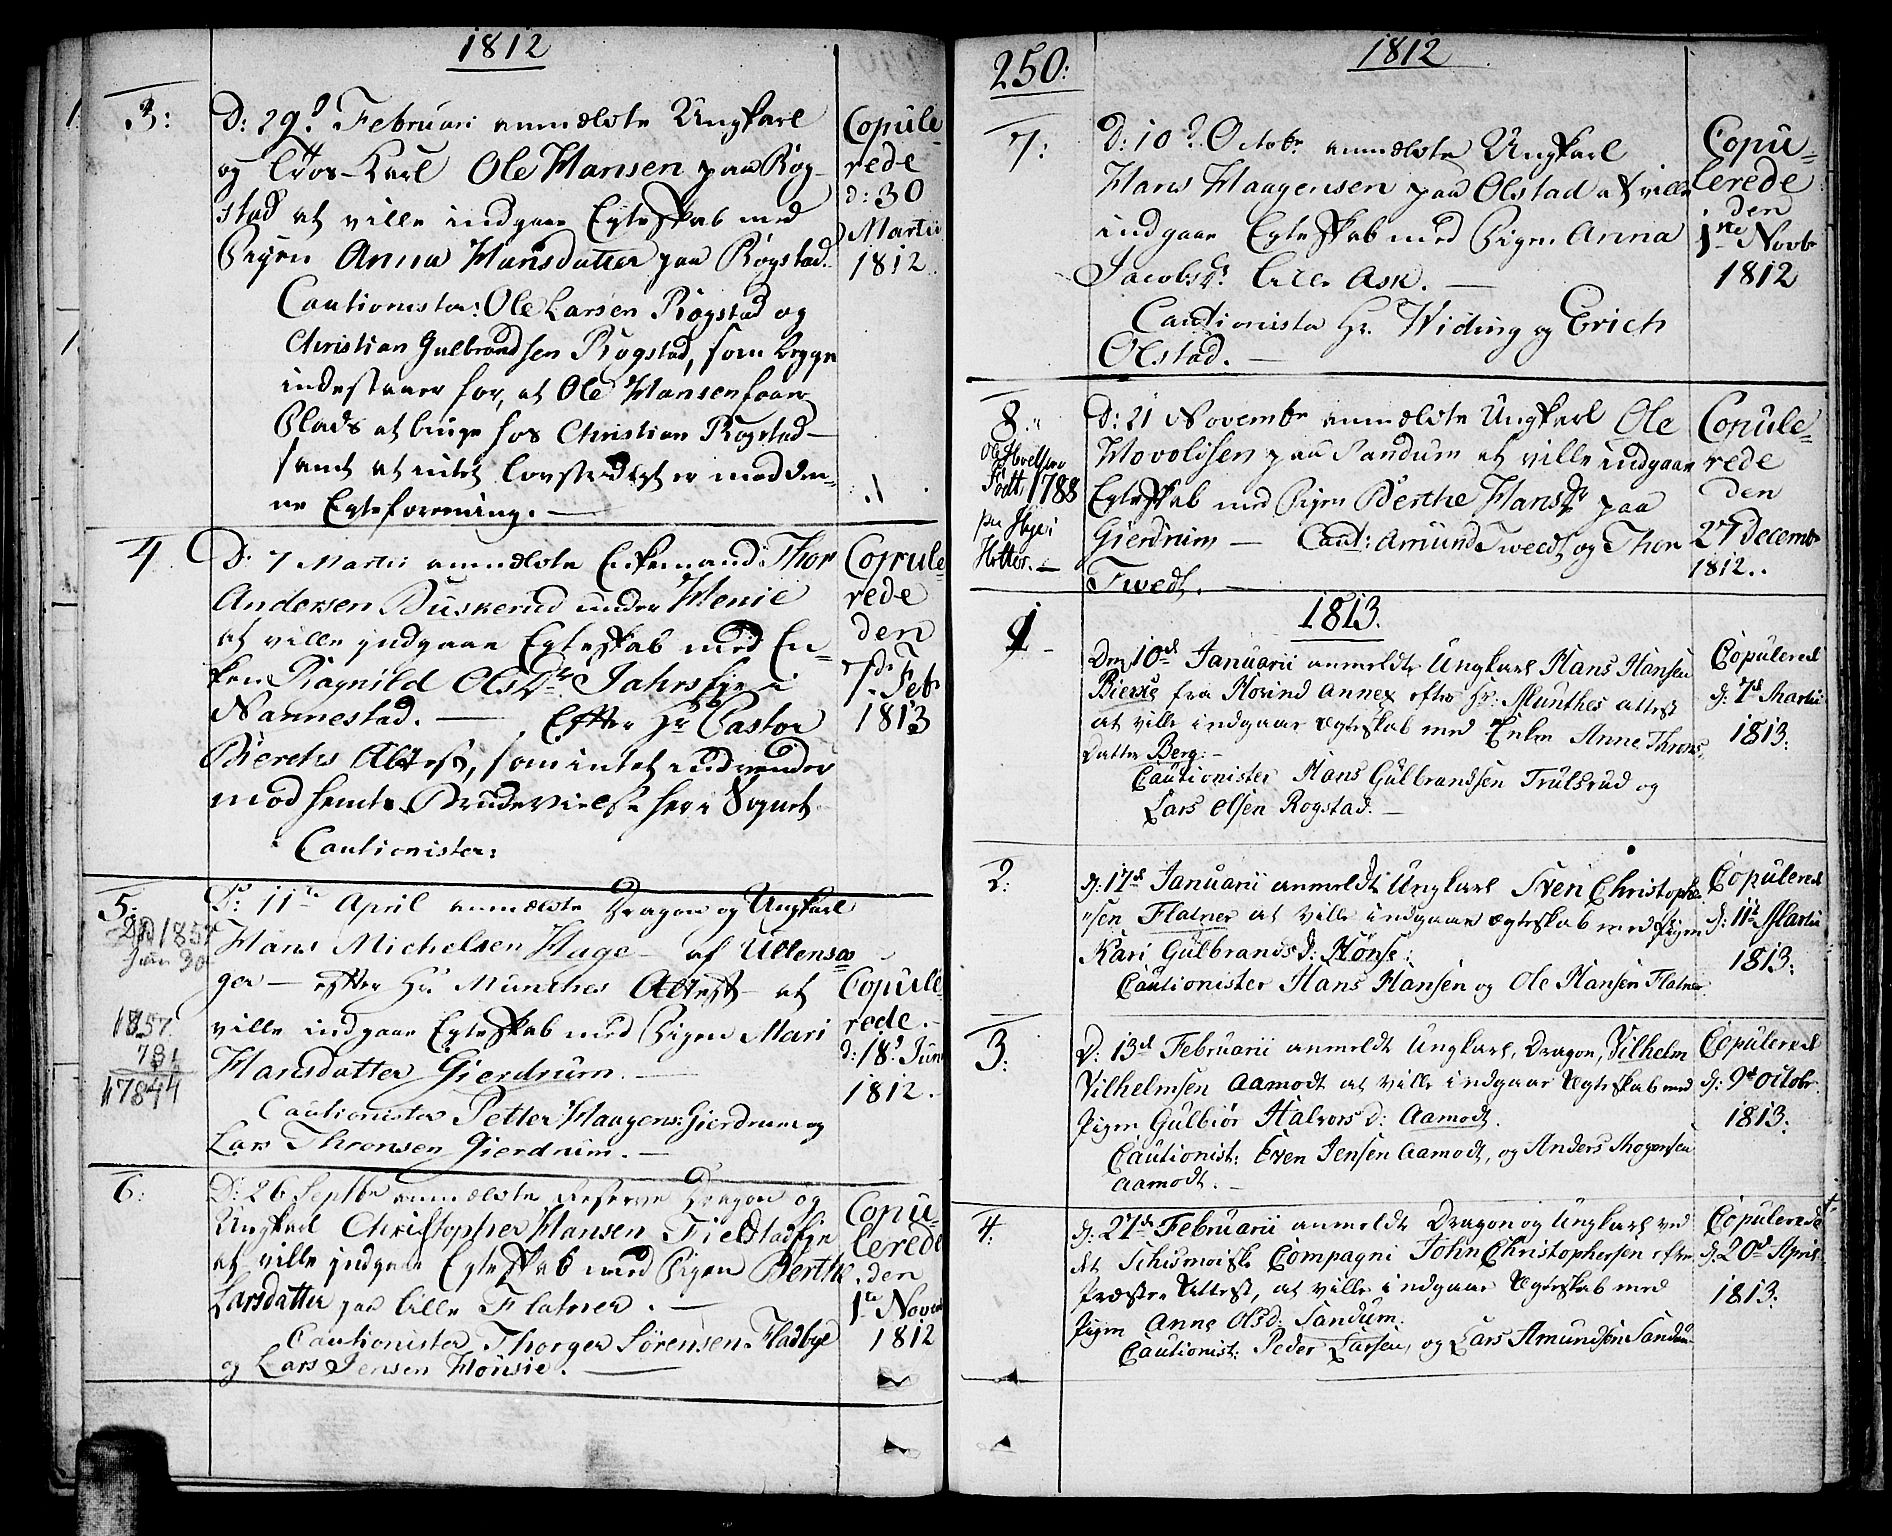 1812
3:
D: 29d Februari anmældte Ungkarl
og Tros-Karl Ole Hansen paa Rog-
stad at ville indgaae Egteskab med
Pigen Anna Hansdatter paa Rogstad.
Cautionister: Ole Larsen Rogstad og
Christian Gulbrandsen Rogstad, som begge
indestaaer for, at Ole Hansen faaer
Plads at boe hos Christian Rogstad
samt at intet er mod den-
ne Egteforening. —
Copule-
rede
d: 30
Martii
1812.
4
D: 7 Martii anmældte Enkemand Thor
Andersen Buskerud under Henie
at ville indgaae Egteskab med En-
ken Ragnild Olsdr. Jahrsbye i
Nannestad. — Efter Hr Pastor
Bierchs Attest, som intet indvender
mod hendes Brudevielse her i Sognet.
Cautionister:
Copule-
rede
den
7de Feb
1813
5:
Død 1857
Jun 30
1857.
73
17844
D: 11te April anmældte Dragon og Ungkarl
Hans Michelsen Hage — af Ullensa-
ger — efter Hr. Munches Attest at
ville indgaae Egteskab med Pigen Mari
Hansdatter Gierdrum. —
Cautionister Petter Haagens: Gierdrum og
Lars Thronsen Gierdrum. —
Copule-
rede.
d: 18d Juni
1812.
6:
D: 26 Septbr anmældte Reserve Dragon og
Ungkarl Christopher Hansen Fieldstadbye
at ville indgaae Egteskab med Pigen Berthe
Larsdatter paa lille Flatner. —
Cautionister Thorger Sørensen Fladbye
og Lars Jensen Hønsie. —
Copu-
lerede
den
1te Novemb
1812
250:
1812
7:
D: 10d Octobr anmældte Ungkarl
Hans Haagensen paa Olstad at ville
indgaae Egteskab med Pigen Anna
Jacobsdr. lille Ask. —
Cautionister Hr. Widing og Erich
Olstad. —
Copu-
lerede
den
1ste Novbr
1812
8.
Ole Hovelsen
Født 1788
paa
Holter. —
D: 21 Novembr anmældte Ungkarl Ole
Hovolisen paa Sandum at ville indgaae
Egteskab med Pigen Berthe Hansdr paa
Gierdrum — Caut: Amund Twedt og Thor
Twedt. —
Copule-
rede
den
27 Decembr
1812..
1813.
1
Den 10de Januarii anmeldte Ungkarl Hans Hansen
Bierke fra Hovind Annex efter Hr: Munthes attest
at ville indgaae Ægteskab med Enken Anne Throns-
datter Berg. —
Cautionister Hans Gulbrandsen Trulsrud og
Lars Olsen Rogstad. —
Copulered
d: 7d Martii
1813:
2:
d: 17d Januarii anmeldte Ungkarl Sven Christophe-
rsen Flatner at ville indgaae Ægteskab med Pigen
Kari Gulbrandsd: Hønse:
Cautionister Hans Hansen og Ole Hansen Flatner
Copulered
d: 11te Martii
1813:
3:
D: 13d Februarii anmeldt Ungkarl, Dragon, Vilhelm
Vilhelmsen Aamodt at ville indgaae Ægteskab med
Pigen Gulbiør Halvorsd: Aamodt.
Cautionist: Even Jensen Aamodt, og Anders Thogersen
Aamodt. —
Copulered
d: 9d Octobr.
1813:
4:
d: 27d Februarii anmeldt Dragon og Ungkarl ved
det Schismoiske Compagni John Christophersen efter
Præstens Attest, at ville indgaae Ægteskab med
Pigen Anne Olsd: Sandum.
Cautionist: Peder Larsen, og Lars Amundsen Sandum
Copulerede
d: 20d April
1813: